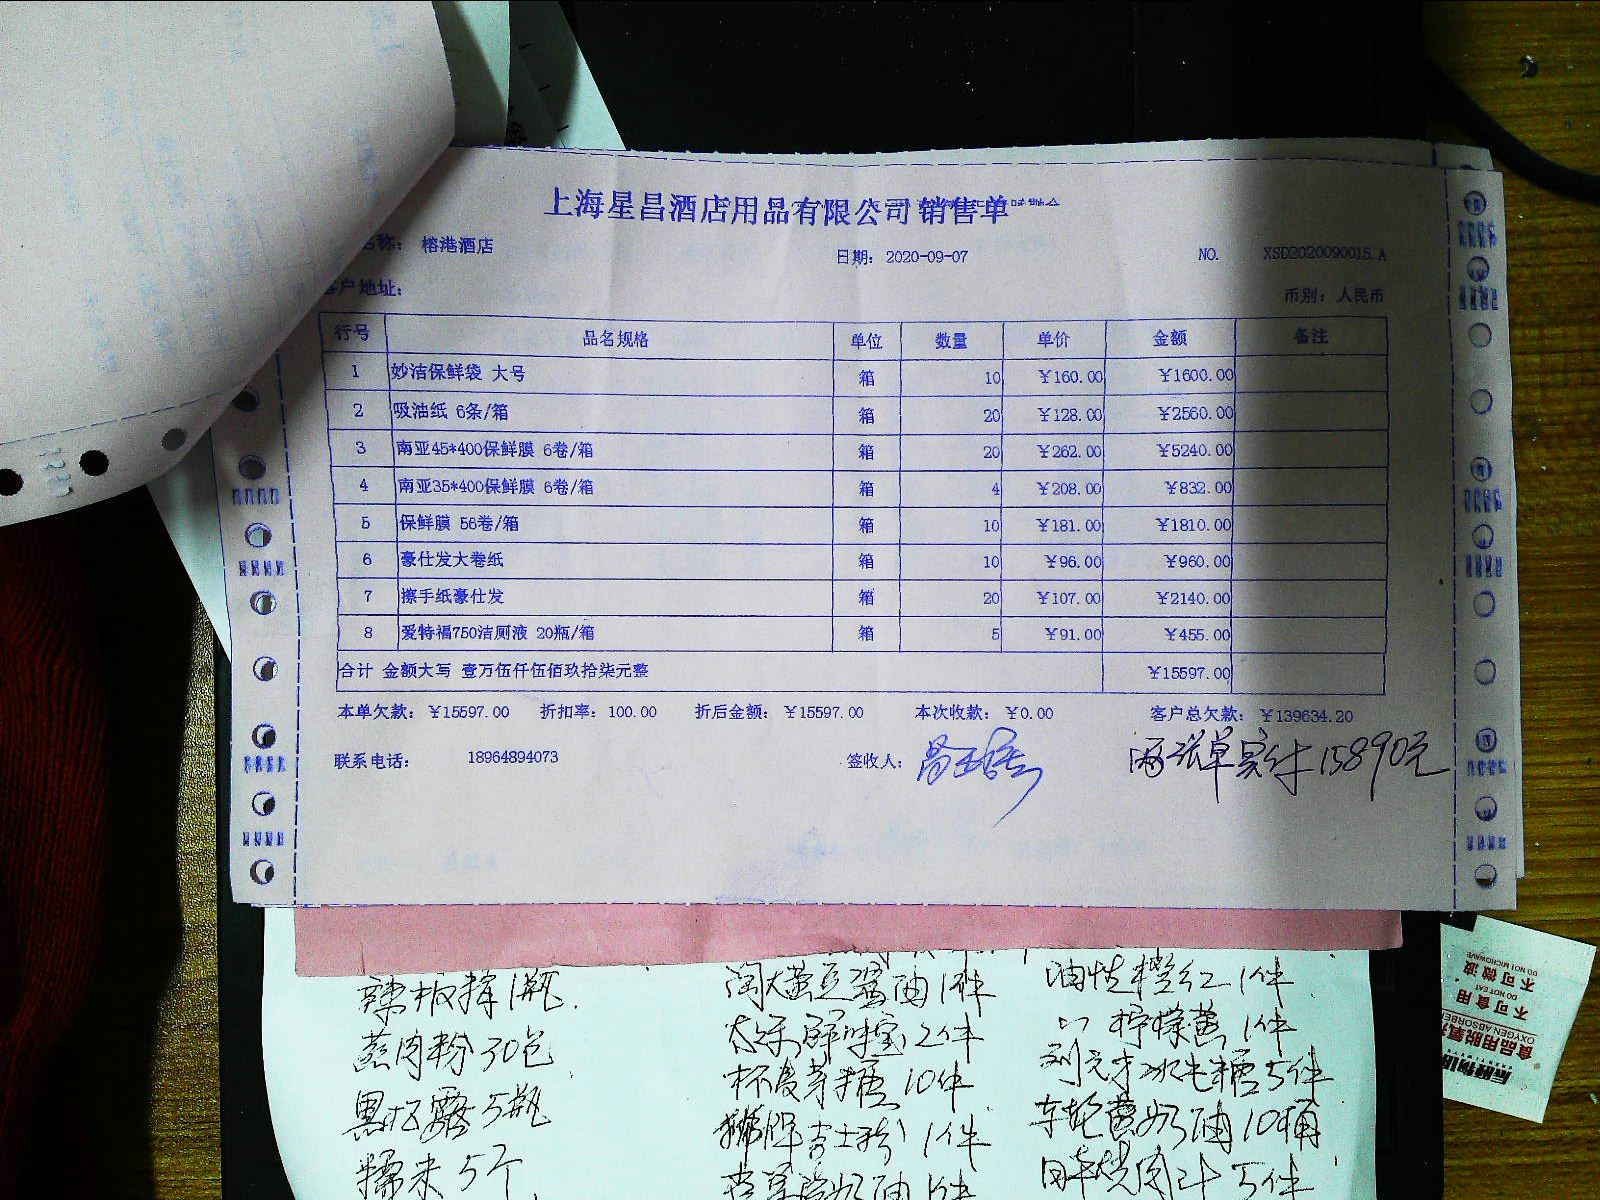 上海星昌酒店用品有限公司 销售单
名称: 榕港酒店 日期: 2020-09-07 NO. XSD2020090015.A
客户地址: 币别: 人民币
行号 品名规格 单位 数量 单价 金额 备注
1 妙洁保鲜袋 大号 箱 10 ¥160.00 ¥1600.00
2 吸油纸 6条/箱 箱 20 ¥128.00 ¥2560.00
3 南亚45*400保鲜膜 6卷/箱 箱 20 ¥262.00 ¥5240.00
4 南亚35*400保鲜膜 6卷/箱 箱 4 ¥208.00 ¥832.00
5 保鲜膜 56卷/箱 箱 10 ¥181.00 ¥1810.00
6 豪仕发大卷纸 箱 10 ¥96.00 ¥960.00
7 擦手纸豪仕发 箱 20 ¥107.00 ¥2140.00
8 爱特福750洁厕液 20瓶/箱 箱 5 ¥91.00 ¥455.00
合计 金额大写 壹万伍仟伍佰玖拾柒元整 ¥15597.00
本单欠款: ¥15597.00 折扣率: 100.00 折后金额: ¥15597.00 本次收款: ¥0.00 客户总欠款: ¥139634.20
联系电话: 18964894073 签收人: 两张单实付15890元
辣椒 1瓶 淘大黄豆酱油1件 油性橙红1件
蒸肉粉30包 太乐鲜味宝2件 柠檬黄1件
黑松露5瓶 10件 冰片糖5件
糯米5个 吉士粉1件 车轮黄奶油10桶
5件
食品用脱氧剂
OXYGEN ABSORBER
不可食用
DO NOT EAT
不可微波
DO NOT MICROWAVE